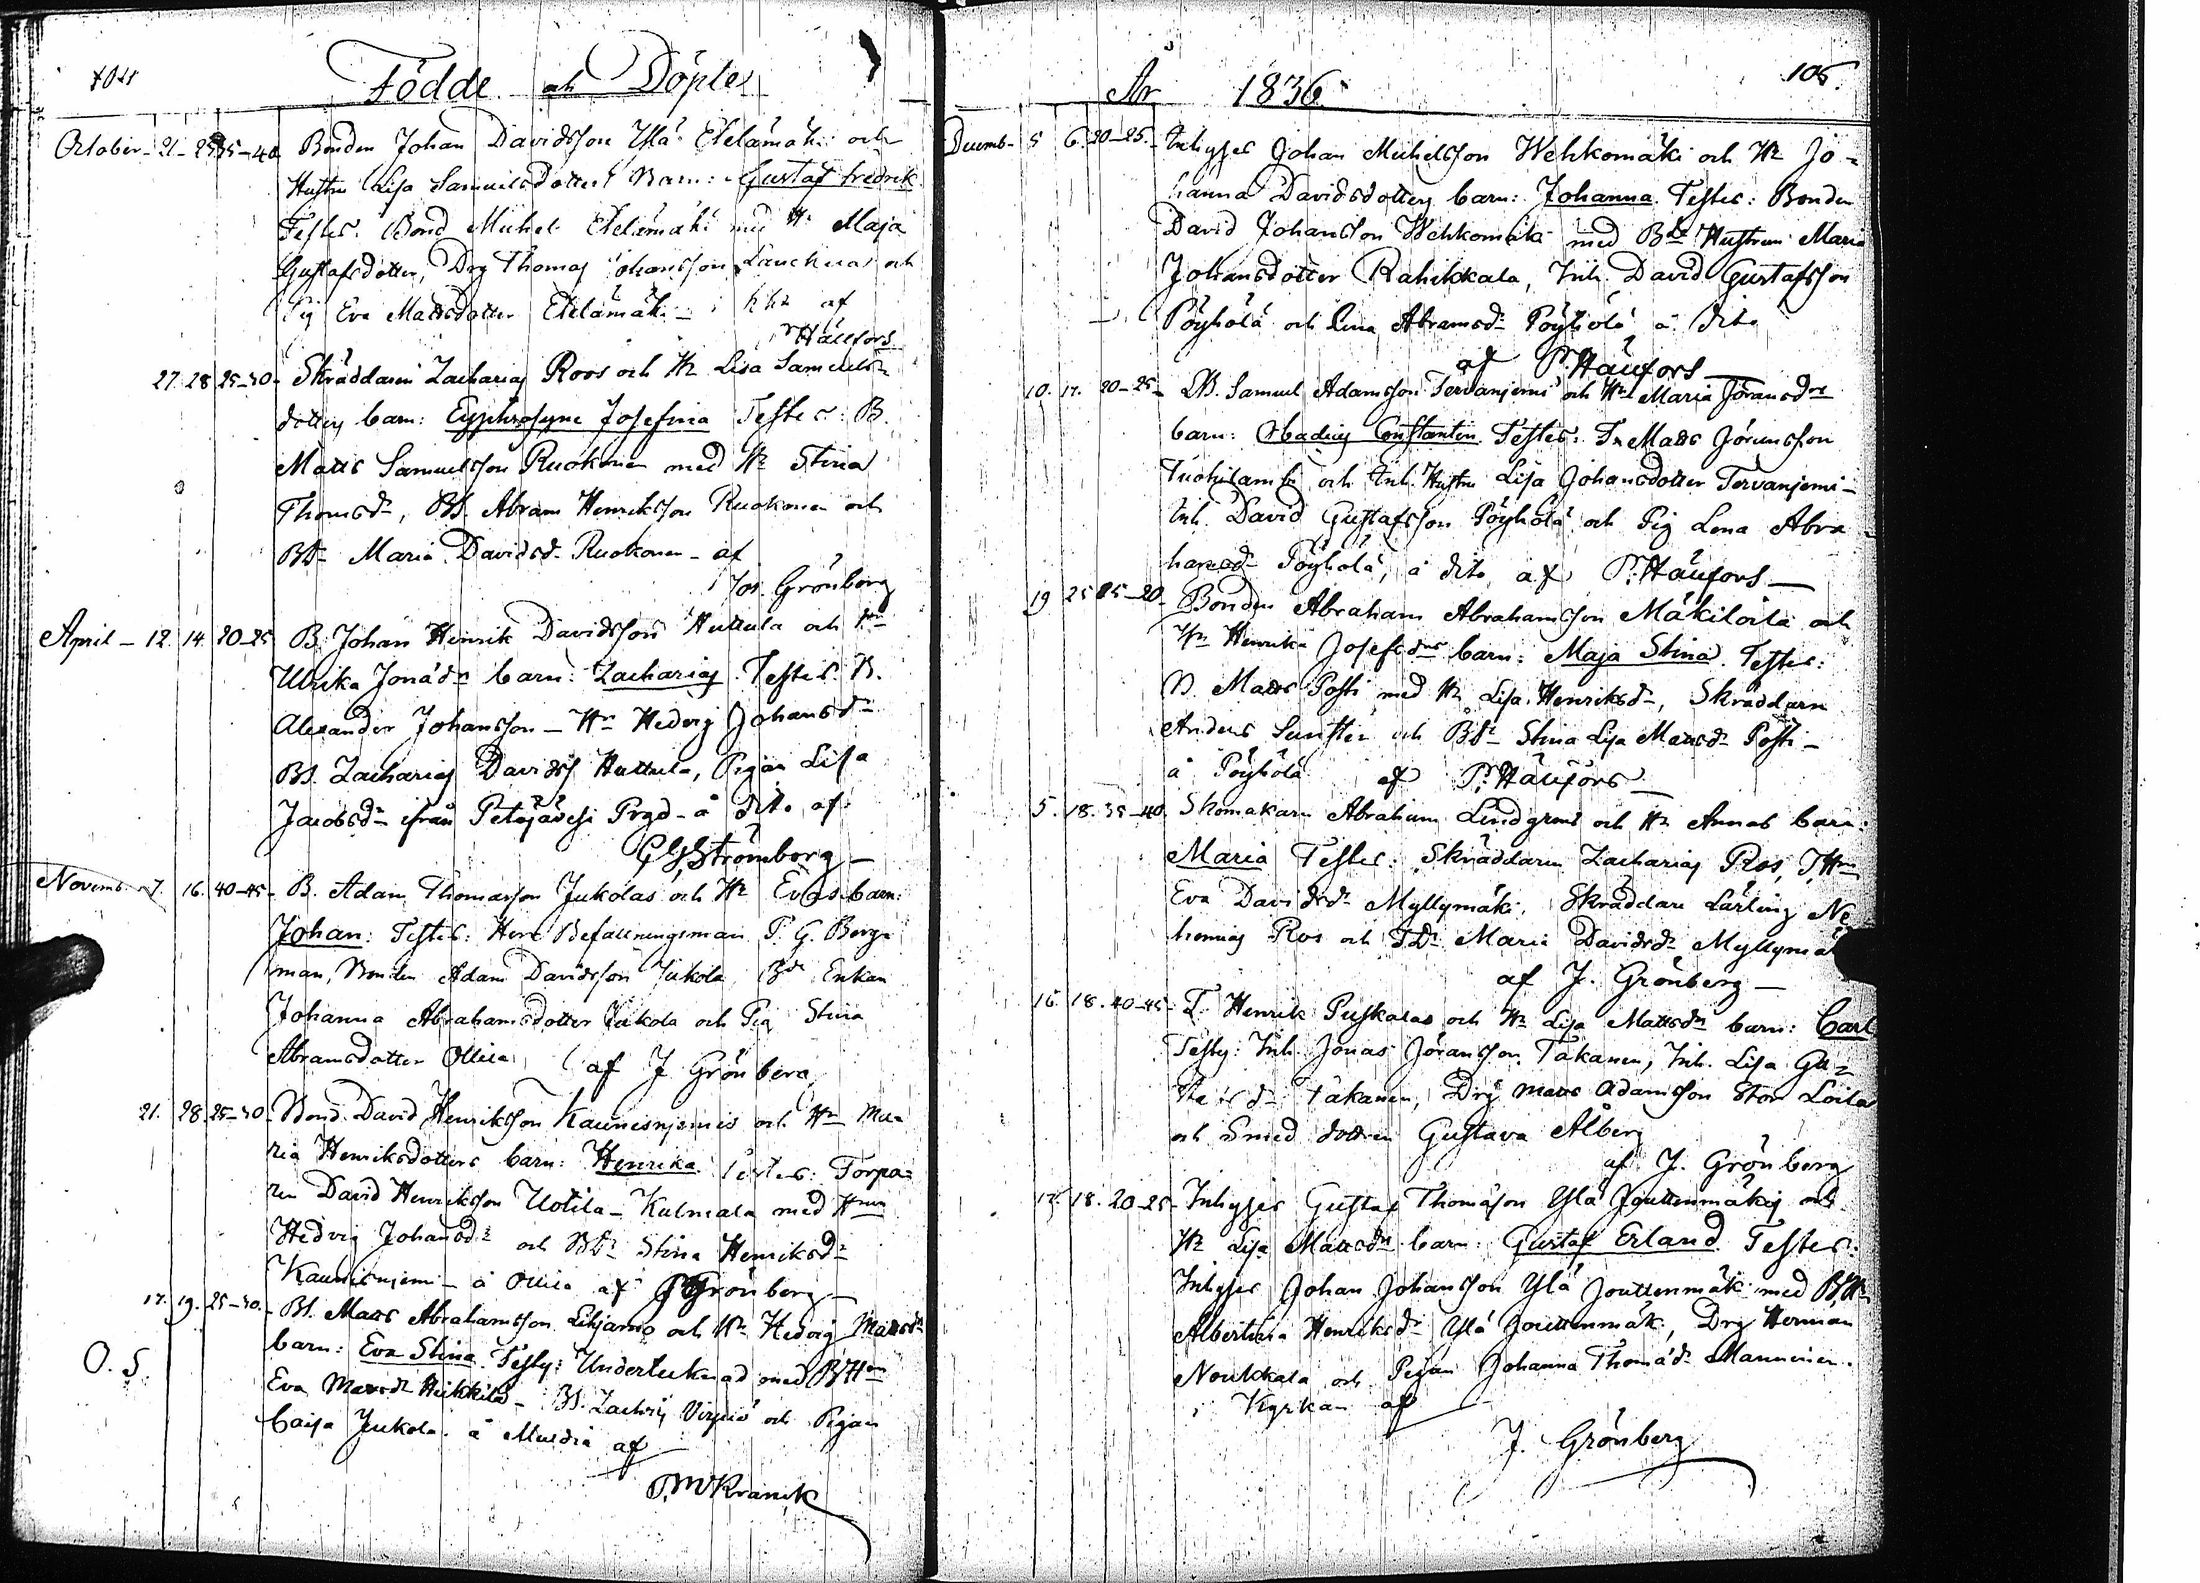 Födde och Döpte
October - 21 - 25 35-40 Bonden Johan Davidsson Ylä Etelämäki och
Hustru Lisa Samuelsdotters Barn: Gustaf fredrik
Testes: Bond Michel Etelämäki med Hr Maja
Gustafsdotter, Drg Thomas Johansson och
Pig Eva Mattsdotter Etelämäki - i af
Häufors
27. 28 25-30. Skräddaren Zacharias Roos och Hr Lisa Samuels-
dotters barn: Euphrosyne Josefina Testes: B.
Matts Samuelsson Ruokonen med Hr Stina
Thomsdr, BS. Abram Henriksson Ruokonen och
BDr Maria Davidsdr Ruokonen - af
Jos. Grönberg
April - 12. 14. 20-25 B. Johan Henrik Davidsson Huttula och Hrs
Ulrika Jonädrs barn: Zacharias. Testes. B.
Alexander Johansson - Hr Hedvig Johansdr
BS. Zacharias Davidss Huttula, Pigan Lisa
Jacobsdr ifrån Petäjävesi Prgd - å dito af
Strömborg -
Novemb. 7. 16. 40-45. B. Adam Thomasson Jukolas och Hr Evas barn:
Johan: Testes: Herr Befallningsman P. G. Berg-
man, Bonden Adam Davidsson Jukola, Bde Enkan
Johanna Abrahamsdotter Jukola och Pig Stina
Abramsdotter Ollila af J Grönberg
21. 28. 25-30. Bond. David Henriksson Kaunisnjemis och Hrs Ma-
ria Henriksdotters barn: Henrika Testes: Torpa-
ren David Henriksson Uotila - Kulmala med Hrun
Hedvig Johansdr och BDr Stina Henriksdr
Kaunisnjemi - å Ollila af J Grönberg -
17. 19. 25-30. - BS. Matts Abrahamsson Lihjamo och Hr Hedvig Mattsdrs
barn: Eva Stina. Testes: Undertecknad med BHrun
Eva Mattsdr Hikkilä - BS. Zachris och Pigan
Caisa Jukola. å af
O. S.
105.
År 1836
Decemb. 5 6. 20-25. Inhyses Johan Michelsson Wehkomäki och Hr Jo-
hanna Davidsdotters barn: Johanna. Testes: Bonden
David Johansson Wehkomäki med Bde Hustrun Maria
Johansdotter Rahikkala, Inh. David Gustafsson
Pöyhölä och Lena Abramsdr Pöyhölä å dito
af P. Häufors
10. 17. 20-25 - BS. Samuel Adamsson Tervanjemi och Hrs Maria Jöransdrs
barn: Constantin. Testes: Matts Jöransson
och Inh. Hustru Lisa Johansdotter Tervanjemi -
Inh. David Gustafsson Pöyhölä och Pig Lena Abra-
hamsdr Pöyhölä, å dito af P. Häufors -
19 25 25-30. Bonden Abraham Abrahamsson Mäkiloila och
Hrs Henrika Josefsdrs barn: Maja Stina. Testes:
B. Matts Posti med Hr Lisa Henriksdr, Skräddarn
Anders och BDr Stina Lisa Mattsdr Posti -
å Pöyhölä af P. Häufors -
5. 18. 35-40. Skomakarn Abraham Lindgrens och Hr Annas barn:
Maria Testes: Skräddaren Zacharias Ros, THrun
Eva Davidsdr Myllymäki, Skräddare Lärling Ne
hemias Ros och TDr Maria Davidsdr Myllymä
af J. Grönberg -
16. 18. 40-45. T. Henrik Puskalas och Hr Lisa Mattsdrs barn: Carl
Testes: Inh. Jonas Jöransson Takanen, Inh. Lisa Gu-
stafsdr Takanen, Drg Matts Adamsson Stor Loila
och Smed dottren Gustava Alberg
af J. Grönberg
17. 18. 20-25 - Inhyses Gustaf Thomasson Ylä Jouttenmäkis och
Hr Lisa Mattsdrs barn: Gustaf Erland. Testes:
Inhyses Johan Johansson Ylä Jouttenmäki med BHr
Albertina Henriksdr Ylä Jouttenmäk, Drg Herman
Noukkala och Pigan Johanna Thomädr Manninen.
i Kyrkan af
J. Grönberg